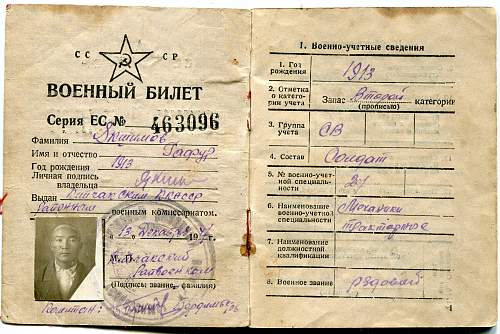 СС СР
ВОЕННЫЙ БИЛЕТ
Серия ЕС № 463096
Фамилия Якшимов
Имя и отчество Гафур
Год рождения 1913
Личная подпись
владельца
Выдан
Районным
военным комиссариатом.
" 13 " декабря 19
М. П.
Райвоенком
(Подпись звание, фамилия)
Капитан:
1. Военно-учетные сведения
1. Год
рождения 1913
2. Отметка
о катего-
рии учета Запас Второй категории
(прописью)
3. Группа
учета СВ
4. Состав Солдат
5. № военно-учет-
ной специаль-
ности 21
6. Наименование
военно-учетной
специальности Механики
тракторные
7. Наименование
должностной
квалификации
8. Военное звание рядовой